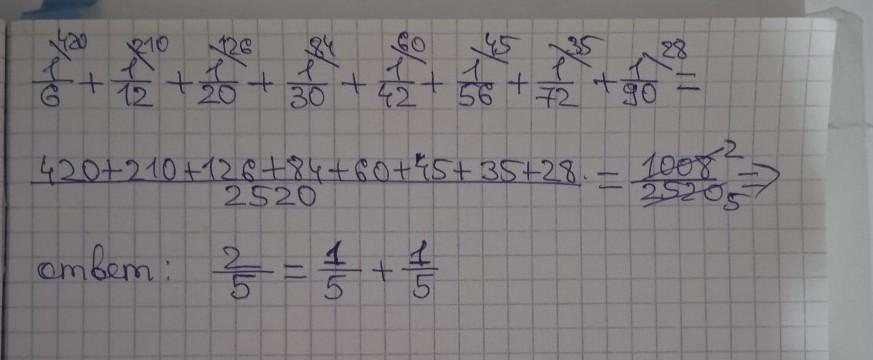 1/6 ⁴²⁰ + 1/12 ²¹⁰ + 1/20 ¹²⁶ + 1/30 ⁸⁴ + 1/42 ⁶⁰ + 1/56 ⁴⁵ + 1/72 ³⁵ + 1/90 ²⁸ =
420+210+126+84+60+45+35+28/2520 = 1008 ²/2520 ₅ ⇒
ответ: 2/5 = 1/5 + 1/5